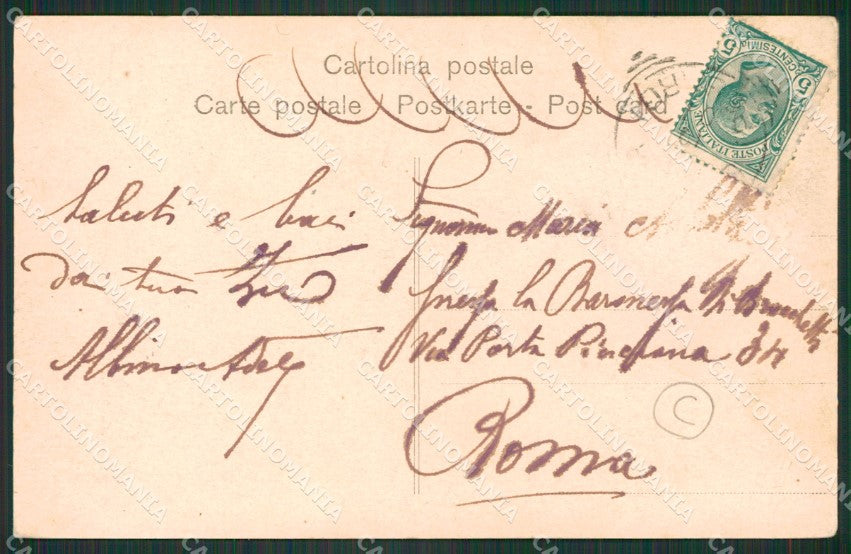 Cartolina postale
Carte postale / Postkarte - Post card
CENTESIMI 5
5
POSTE ITALIANE
Saluti e baci
dai tuoi Zii
Albino Adele
Signorina Maria
presso la Baronessa Di
Via Porta Pinciana 34
Roma
C
CARTOLINOMANIA